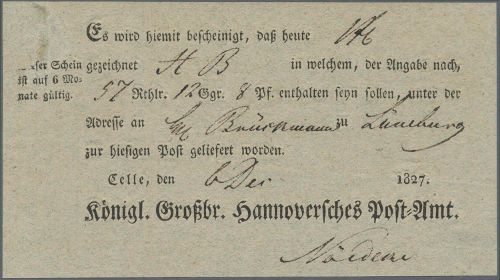 Es wird hiemit bescheinigt, daß heute
dieser Schein ist auf 6 Mo- nate gültig.
gezeichnet H B in welchem, der Angabe nach,
57 Rthlr. 12 Ggr. 8 Pf. enthalten seyn sollen, unter der
Adresse an Brückmann zu Lüneburg
zur hiesigen Post geliefert worden.
Celle, den 6 Dec 1827.
Königl. Großbr. Hannoversches Post-Amt.